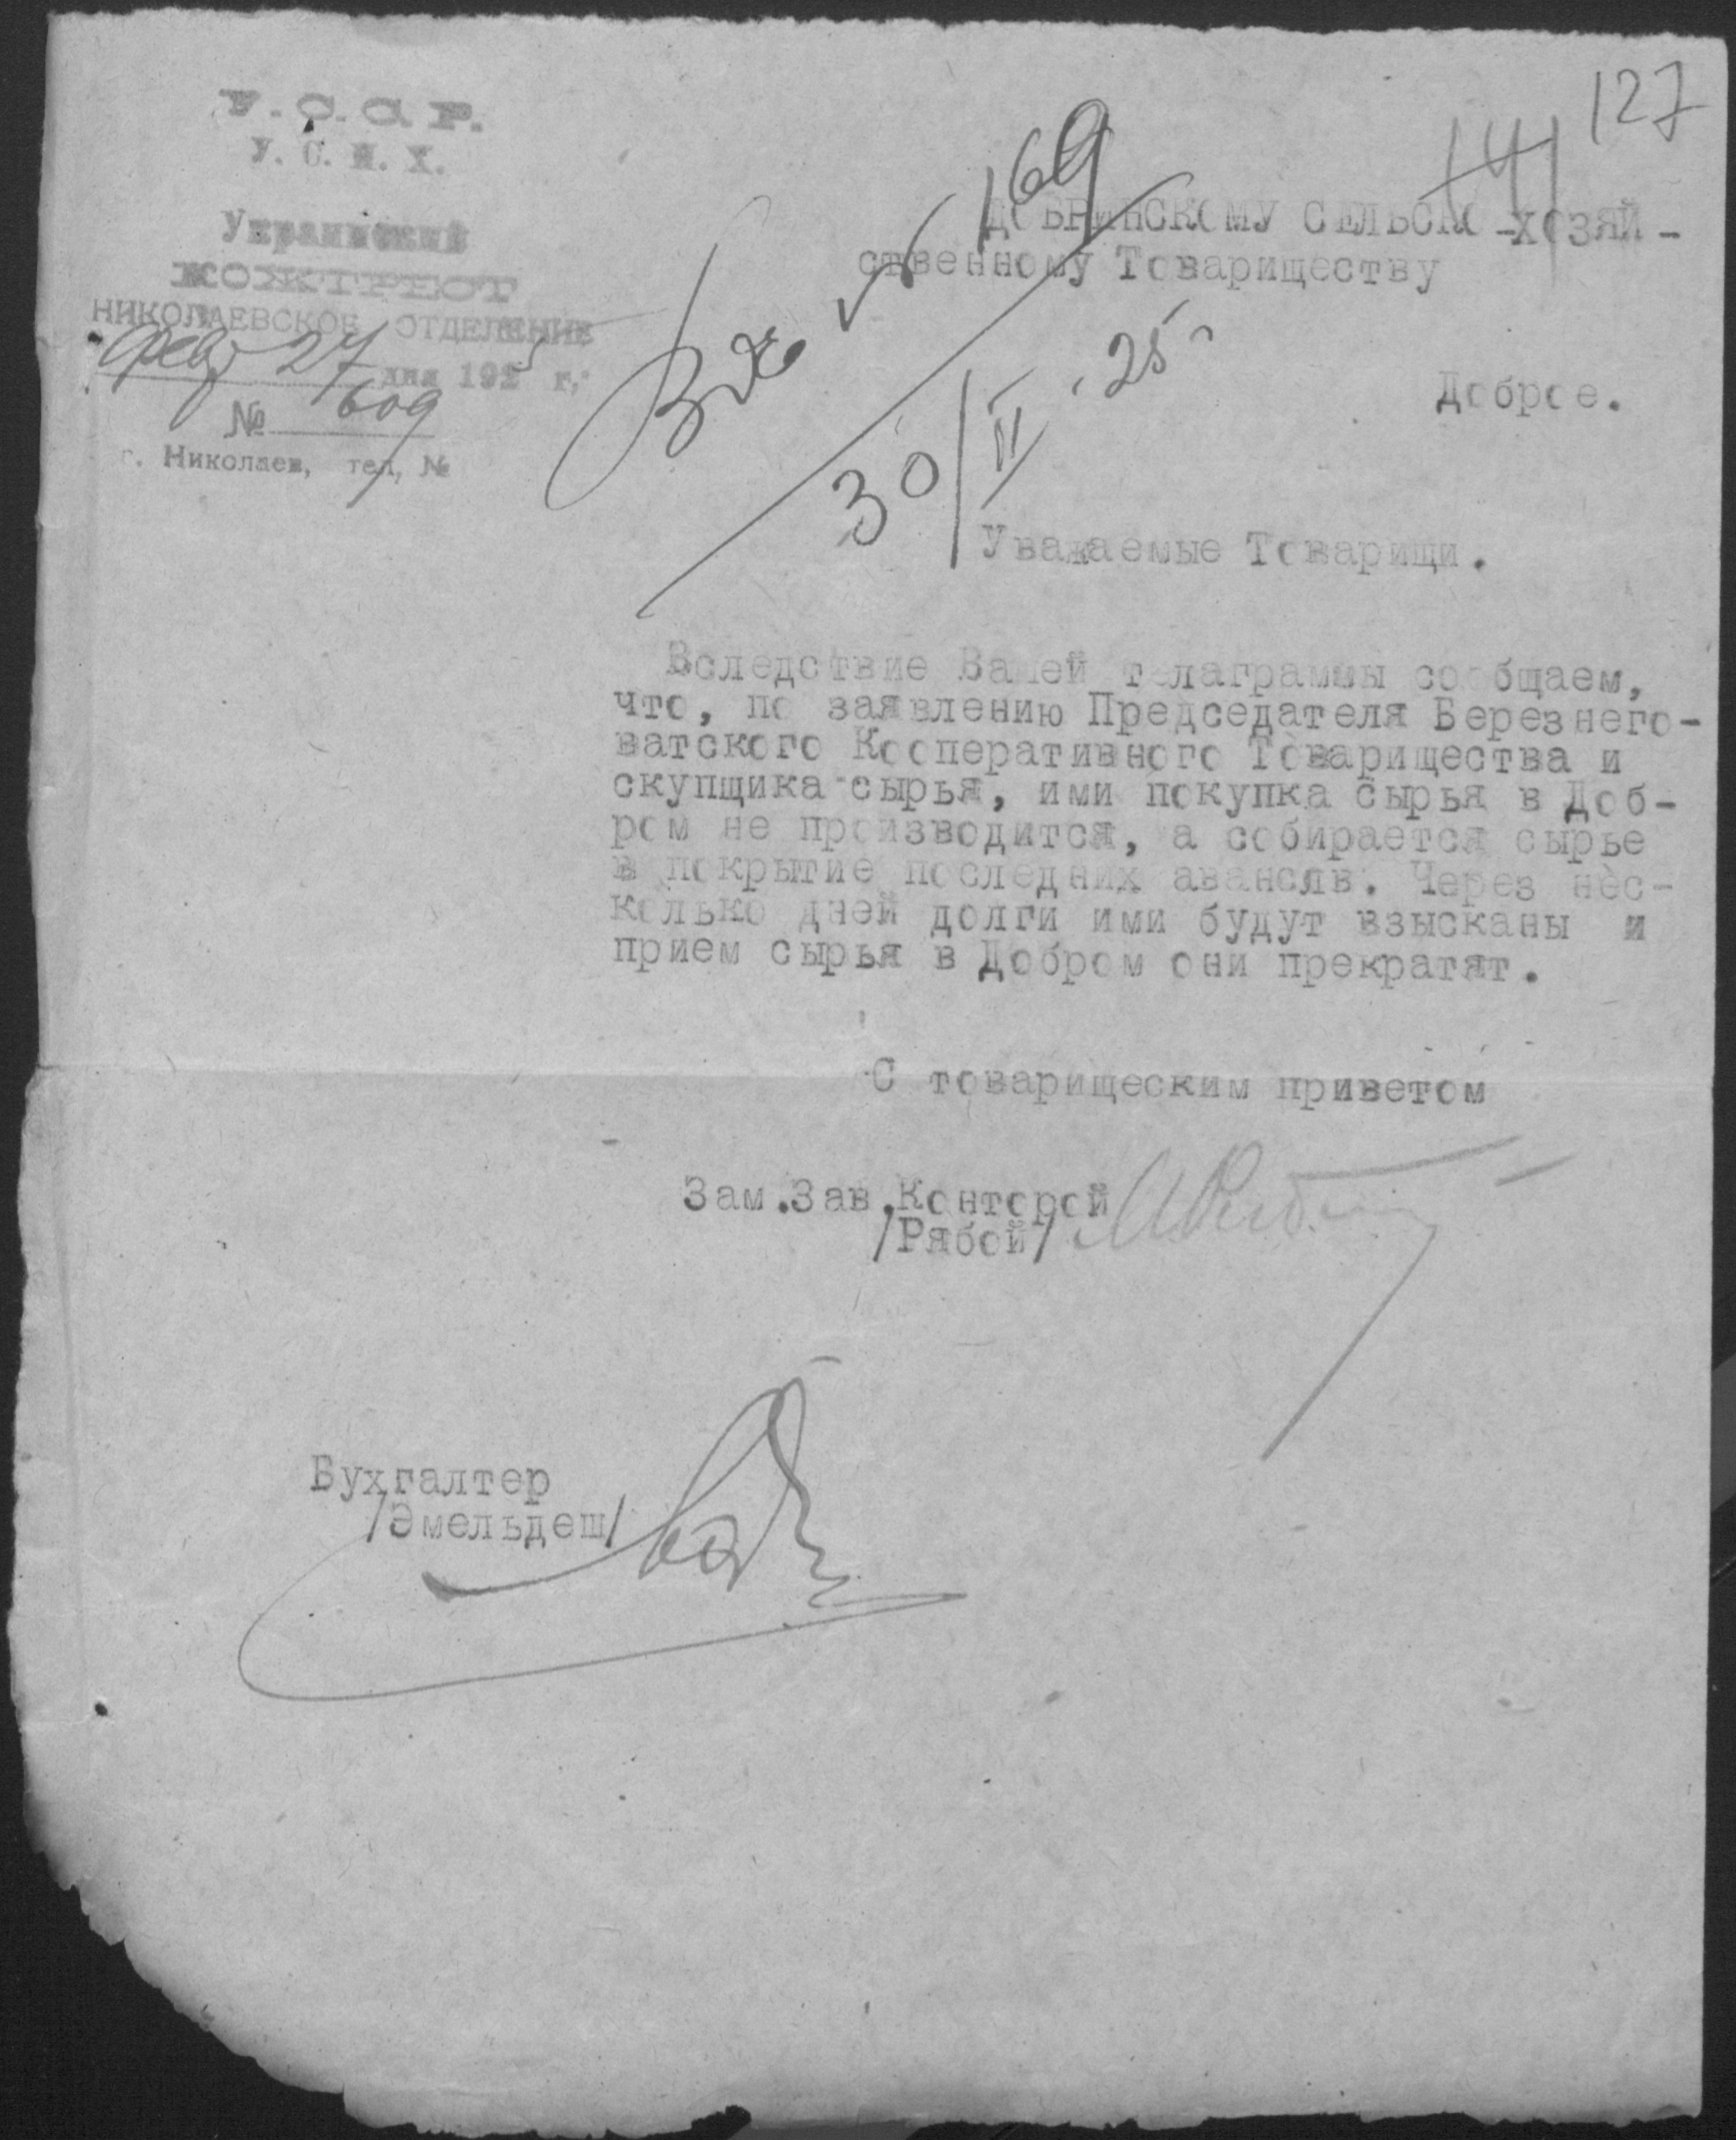 У.С.С.Р.
У.С.Н.Х.
Украинский
КОЖТРЕСТ
НИКОЛАЕВСКОЕ ОТДЕЛЕНИЕ
февр 27 дня 1925 г.
№ 609
г. Николаев, тел, №
127
141
Вх № 169
30/III.25
ДОБРИНСКОМУ СЕЛЬСКО-ХОЗЯЙ-
ственному Товариществу
Доброе.
Уважаемые Товарищи.
Вследствие Вашей телаграммы сообщаем,
что, по заявлению Председателя Березнего-
ватского Кооперативного Товарищества и
скупщика сырья, ими покупка сырья в Доб-
ром не производится, а собирается сырье
в покрытие последних аванслв. Через нес-
колько дней долги ими будут взысканы и
прием сырья в Добром они прекратят.
С товарищеским приветом
Зам.Зав.Конторой
/Рябой/
Бухгалтер
/Эмельдеш/